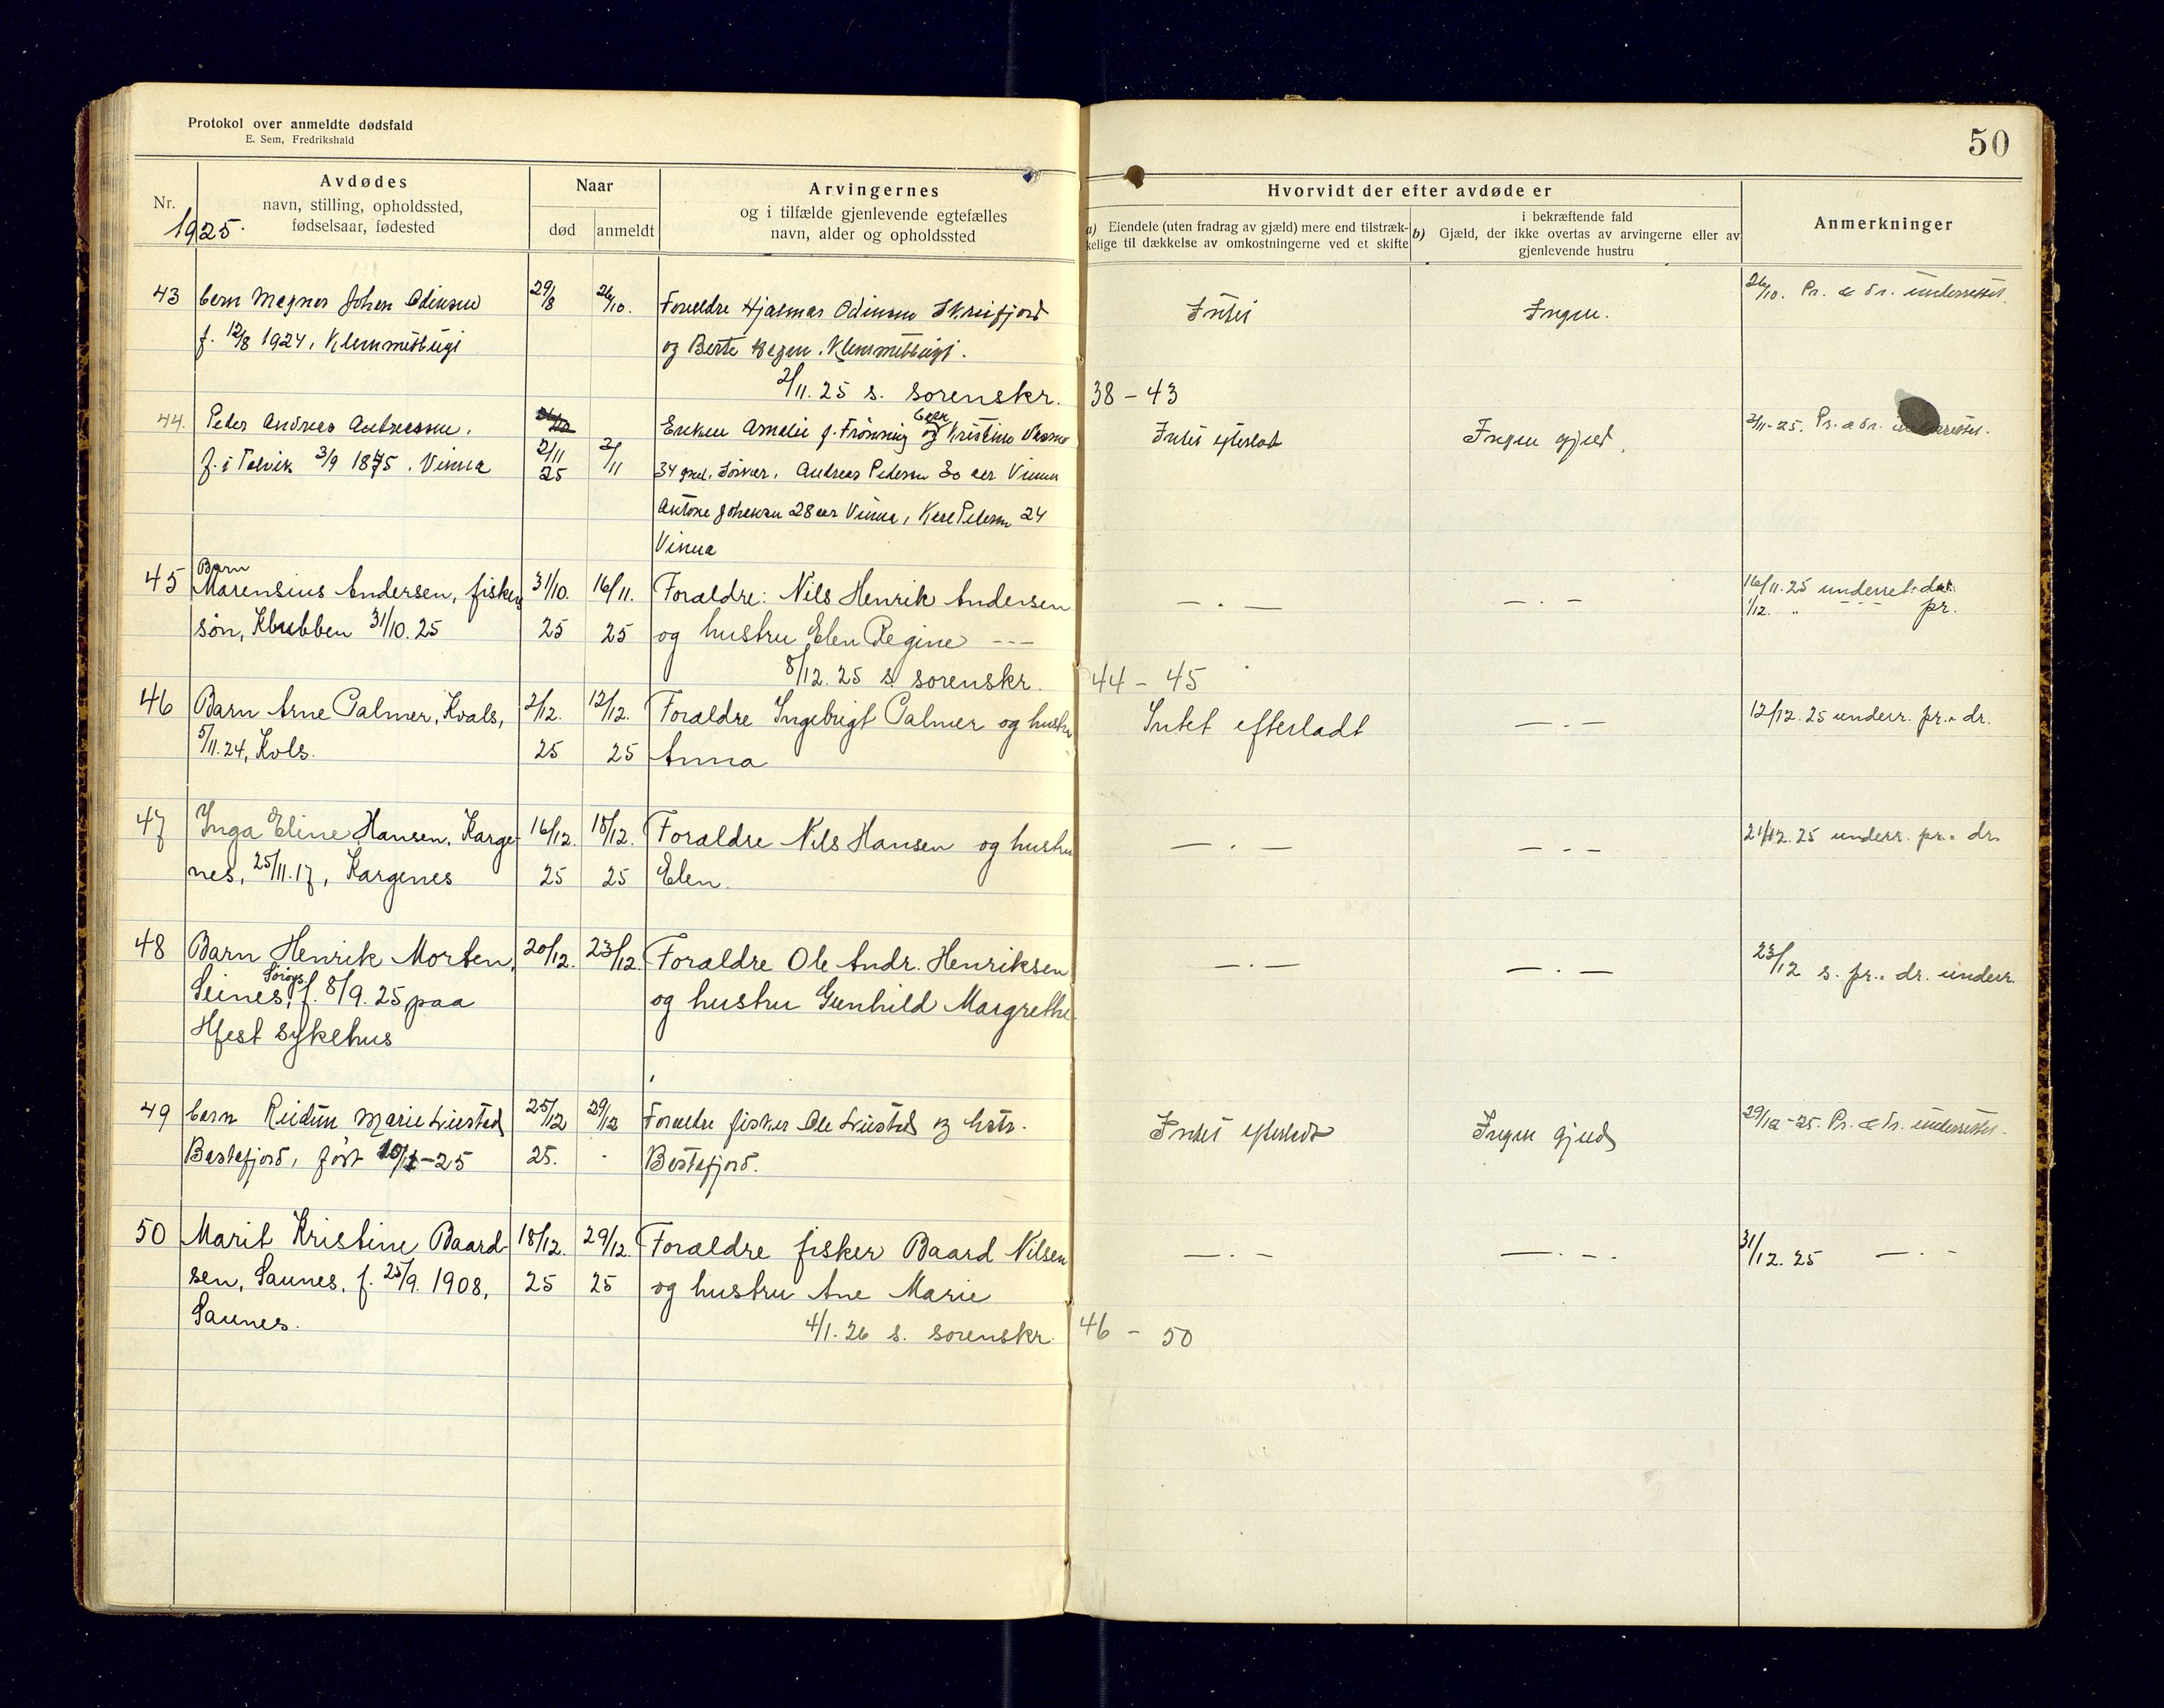 Protokol over anmeldte dødsfald
E. Sem, Fredrikshald
50
Nr.
1925.
Avdødes
navn, stilling, opholdssted,
fødselsaar, fødested
Naar
død
anmeldt
Arvingernes
og i tilfælde gjenlevende egtefælles
navn, alder og opholdssted
Hvorvidt der efter avdøde er
a) Eiendele (uten fradrag av gjæld) mere end tilstræk-
kelige til dækkelse av omkostningerne ved et skifte
i bekræftende fald
b) Gjæld, der ikke overtas av arvingerne eller av
gjenlevende hustru
Anmerkninger
43 barn Magnor Johan Odinsen 29/8 26/10. Forældre Hjalmar Odinsen Skreifjord Intet Ingen. 26/10. Pr. & dr. underrettet.
f. 12/8 1924, Klemmetbugt og Berte Klemmetbugt.
2/11. 25 s. sorenskr. 38 - 43
44. Peder Andreas Andreassen. Enken Amalie f. Frönning barn og Kristine Intet efterladt Ingen gjæld. 3/11-25. Pr. & dr. underrettet.
f. i Talvik 3/9 1875. Vinna 2/11 25 2/11 34 Sörvær. Andreas Pedersen 30 aar Vinna
Antone Johansen 28 aar Vinna, Karl Pedersen 24
Vinna
45 Barn Marensius Andersen, fisker 31/10. 16/11. Forældre: Nils Henrik Andersen — . — — . — 16/11. 25 underret. dr.
søn, Klubben 31/10. 25 25 25 og hustru Elen Regine --- 1/12. " --- pr.
8/12. 25 s. sorenskr. 44 - 45
46 Barn Arne Palmer, Kvals, 2/12. 12/12. Forældre Ingebrigt Palmer og hustru Intet efterladt — . — 12/12. 25 underr. pr. " dr.
5/11. 24, Kvls. 25 25 Anna
47 Inga Eline Hansen, Karge- 16/12. 18/12. Forældre Nils Hansen og hustru — . — — . — 21/12. 25 underr. pr. " dr.
nes, 25/11. 17, Kargenes 25 25 Elen.
48 Barn Henrik Morten, 20/12. 23/12. Forældre Ole Andr. Henriksen — . — — . — 23/12 s. pr. " dr. underr.
Seines, Sörøys. f. 8/9. 25 paa og hustru Gunhild Margrethe
Hfest sykehus
49 barn Reidun Marie Liested 25/12 29/12 Forældre fisker Ole Liested og hstr. Intet efterladt Ingen gjæld 29/12-25. Pr. & dr. underrettet.
Bastafjord, født -25 25. Bastafjord.
50 Marit Kristine Baard- 18/12. 29/12. Forældre fisker Baard Nilsen — . — — . — . 31/12. 25 — . -
sen, Saunes, f. 25/9. 1908, 25 25 og hustru Ane Marie
Saunes. 4/1. 26 s. sorenskr. 46 - 50